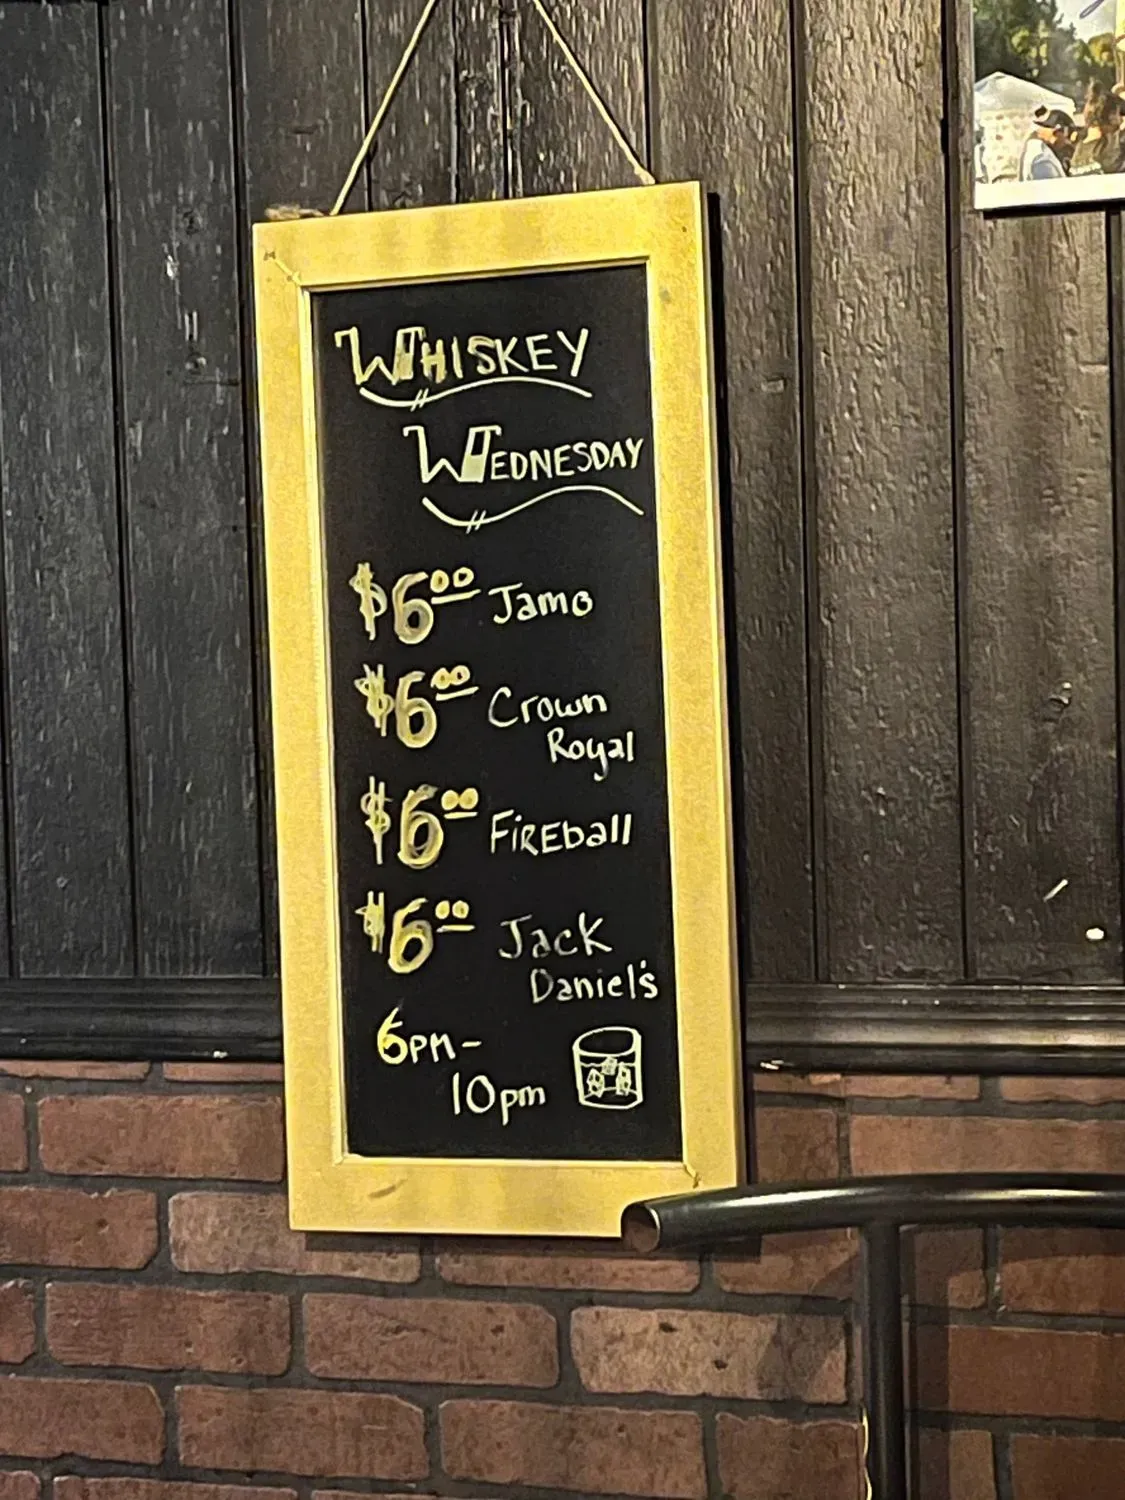 WHISKEY
WEDNESDAY
$6.00 Jamo
$6.00 Crown
Royal
$6.00 FiREball
$6.00 Jack
Daniel's
6pm-
10pm